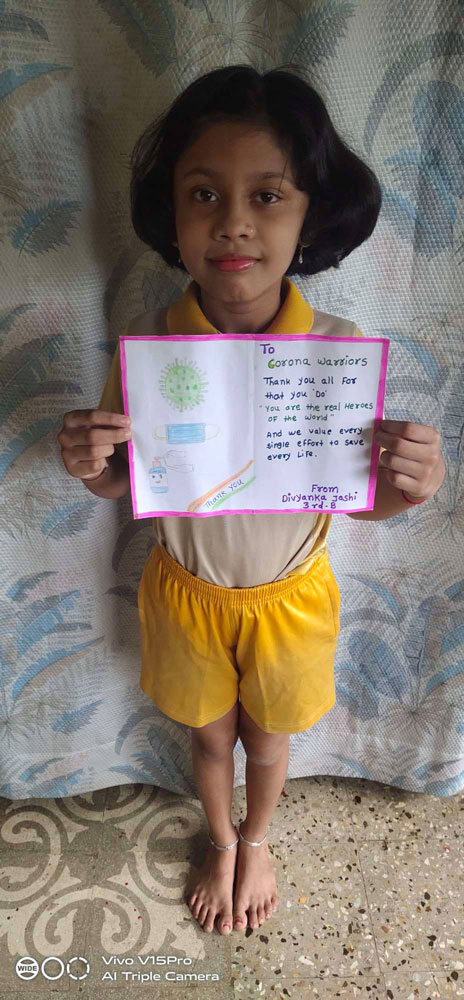 Thank You
To
Corona warriors
Thank you all For
that you 'Do'
"You are the real Heroes
OF the World"
And we value every
single effort to save
every Life.
From
Divyanka Jashi
3rd-B
WIDE
Vivo V15Pro
AI Triple Camera